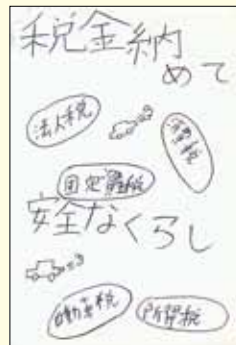 税金納
めて
法人税
消費税
固定資産税
安全なくらし
自動車税
所得税